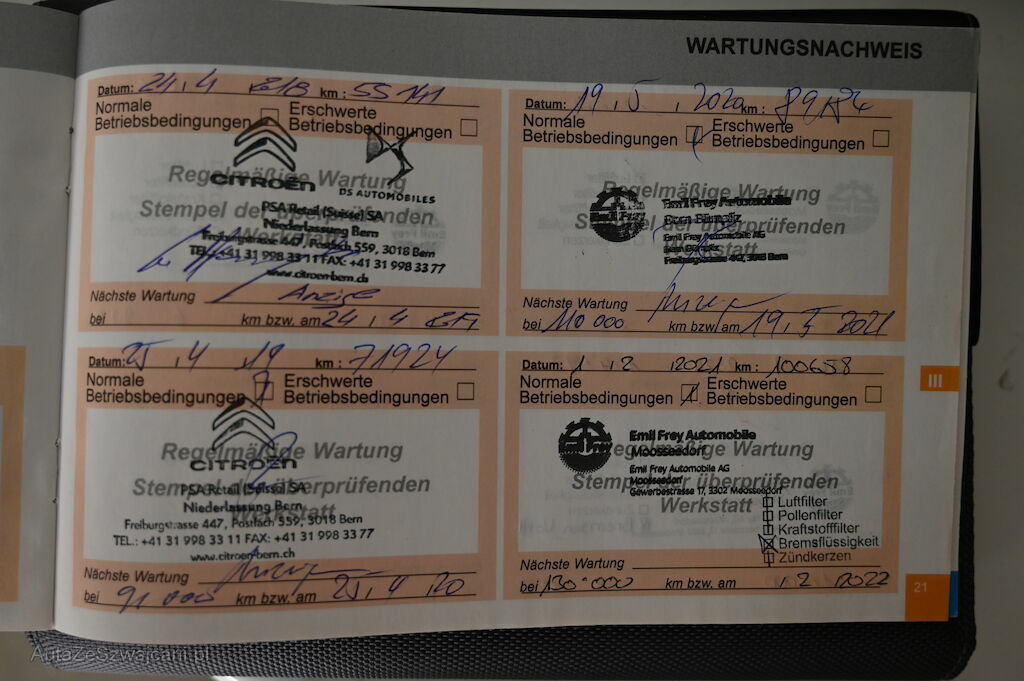 WARTUNGSNACHWEIS
Datum: 24 . 4 2018 km : 55 141
Normale Betriebsbedingungen
Erschwerte Betriebsbedingungen
CITROËN
DS AUTOMOBILES
Regelmäßige Wartung
Stempel der überprüfenden
Werkstatt
PSA Retail (Suisse) SA
Niederlassung Bern
Freiburgstrasse 447, Postfach 559, 3018 Bern
TEL.: +41 31 998 33 11 FAX: +41 31 998 33 77
www.citroen-bern.ch
Nächste Wartung Anzeige
bei km bzw. am 24 . 4
Datum: 19 . 5 . 2020 km :
Normale Betriebsbedingungen
Erschwerte Betriebsbedingungen
Regelmäßige Wartung
Stempel der überprüfenden
Werkstatt
Emil Frey Automobile
Emil Frey Automobile AG
Freiburgstrasse 447, 3018 Bern
Nächste Wartung
bei 110 000 km bzw. am 19 . 5 2021
Datum: 25 . 4 . 19 km : 71924
Normale Betriebsbedingungen
Erschwerte Betriebsbedingungen
CITROËN
Regelmäßige Wartung
Stempel der überprüfenden
Werkstatt
PSA Retail (Suisse) SA
Niederlassung Bern
Freiburgstrasse 447, Postfach 559, 3018 Bern
TEL.: +41 31 998 33 11 FAX: +41 31 998 33 77
www.citroen-bern.ch
Nächste Wartung
bei 91 000 km bzw. am 25 . 4 . 20
Datum: 1 . 2 . 2021 km : 100658
Normale Betriebsbedingungen
Erschwerte Betriebsbedingungen
Regelmäßige Wartung
Stempel der überprüfenden
Werkstatt
Emil Frey Automobile
Moosseedorf
Emil Frey Automobile AG
Moosseedorf
Gewerbestrasse 17, 3302 Moosseedorf
Luftfilter
Pollenfilter
Kraftstofffilter
Bremsflüssigkeit
Zündkerzen
Nächste Wartung
bei 130 000 km bzw. am . 2 2022
III
21
AutaZeSzwajcarii.pl